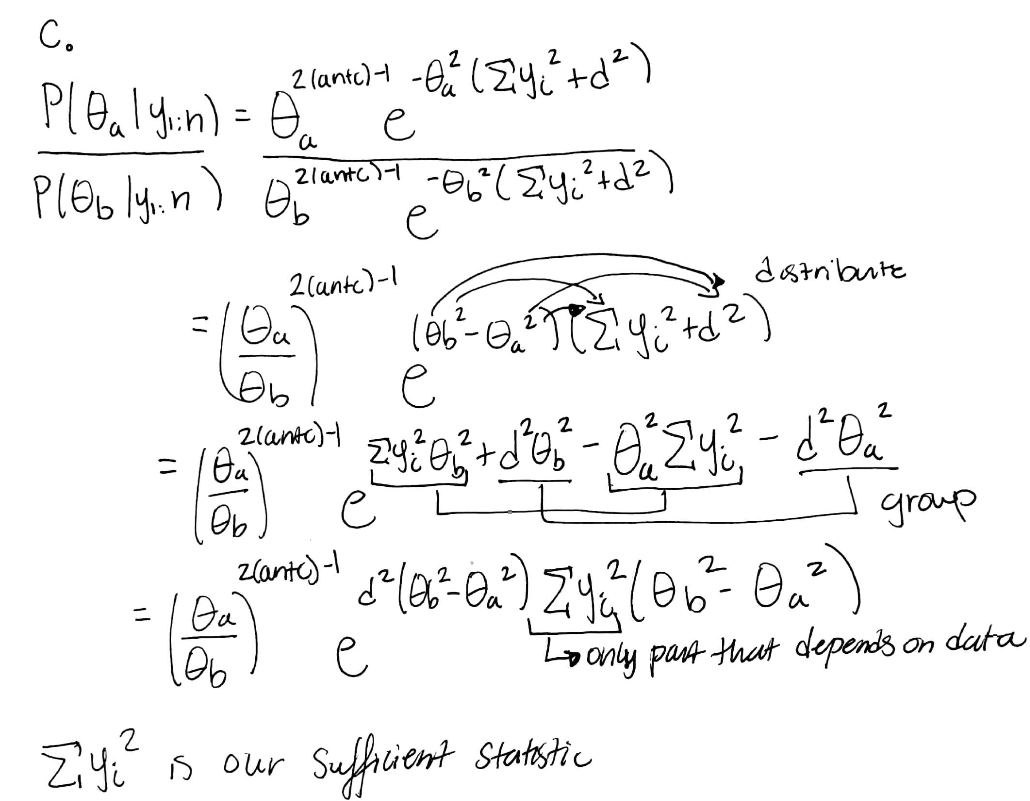 C.
P(θₐ|y₁:n) / P(θ_b|y₁:n) = θₐ^(2(an+c)-1) e^(-θₐ²(Σyᵢ²+d²)) / θ_b^(2(an+c)-1) e^(-θ_b²(Σyᵢ²+d²))
= (θₐ/θ_b)^(2(an+c)-1) e^((θ_b²-θₐ²)(Σyᵢ²+d²)) distribute
= (θₐ/θ_b)^(2(an+c)-1) e^(Σyᵢ²θ_b²+d²θ_b²-θₐ²Σyᵢ²-d²θₐ²)
group
= (θₐ/θ_b)^(2(an+c)-1) e^(d²(θ_b²-θₐ²)Σyᵢ²(θ_b²-θₐ²))
↳ only part that depends on data
Σyᵢ² is our sufficient statistic